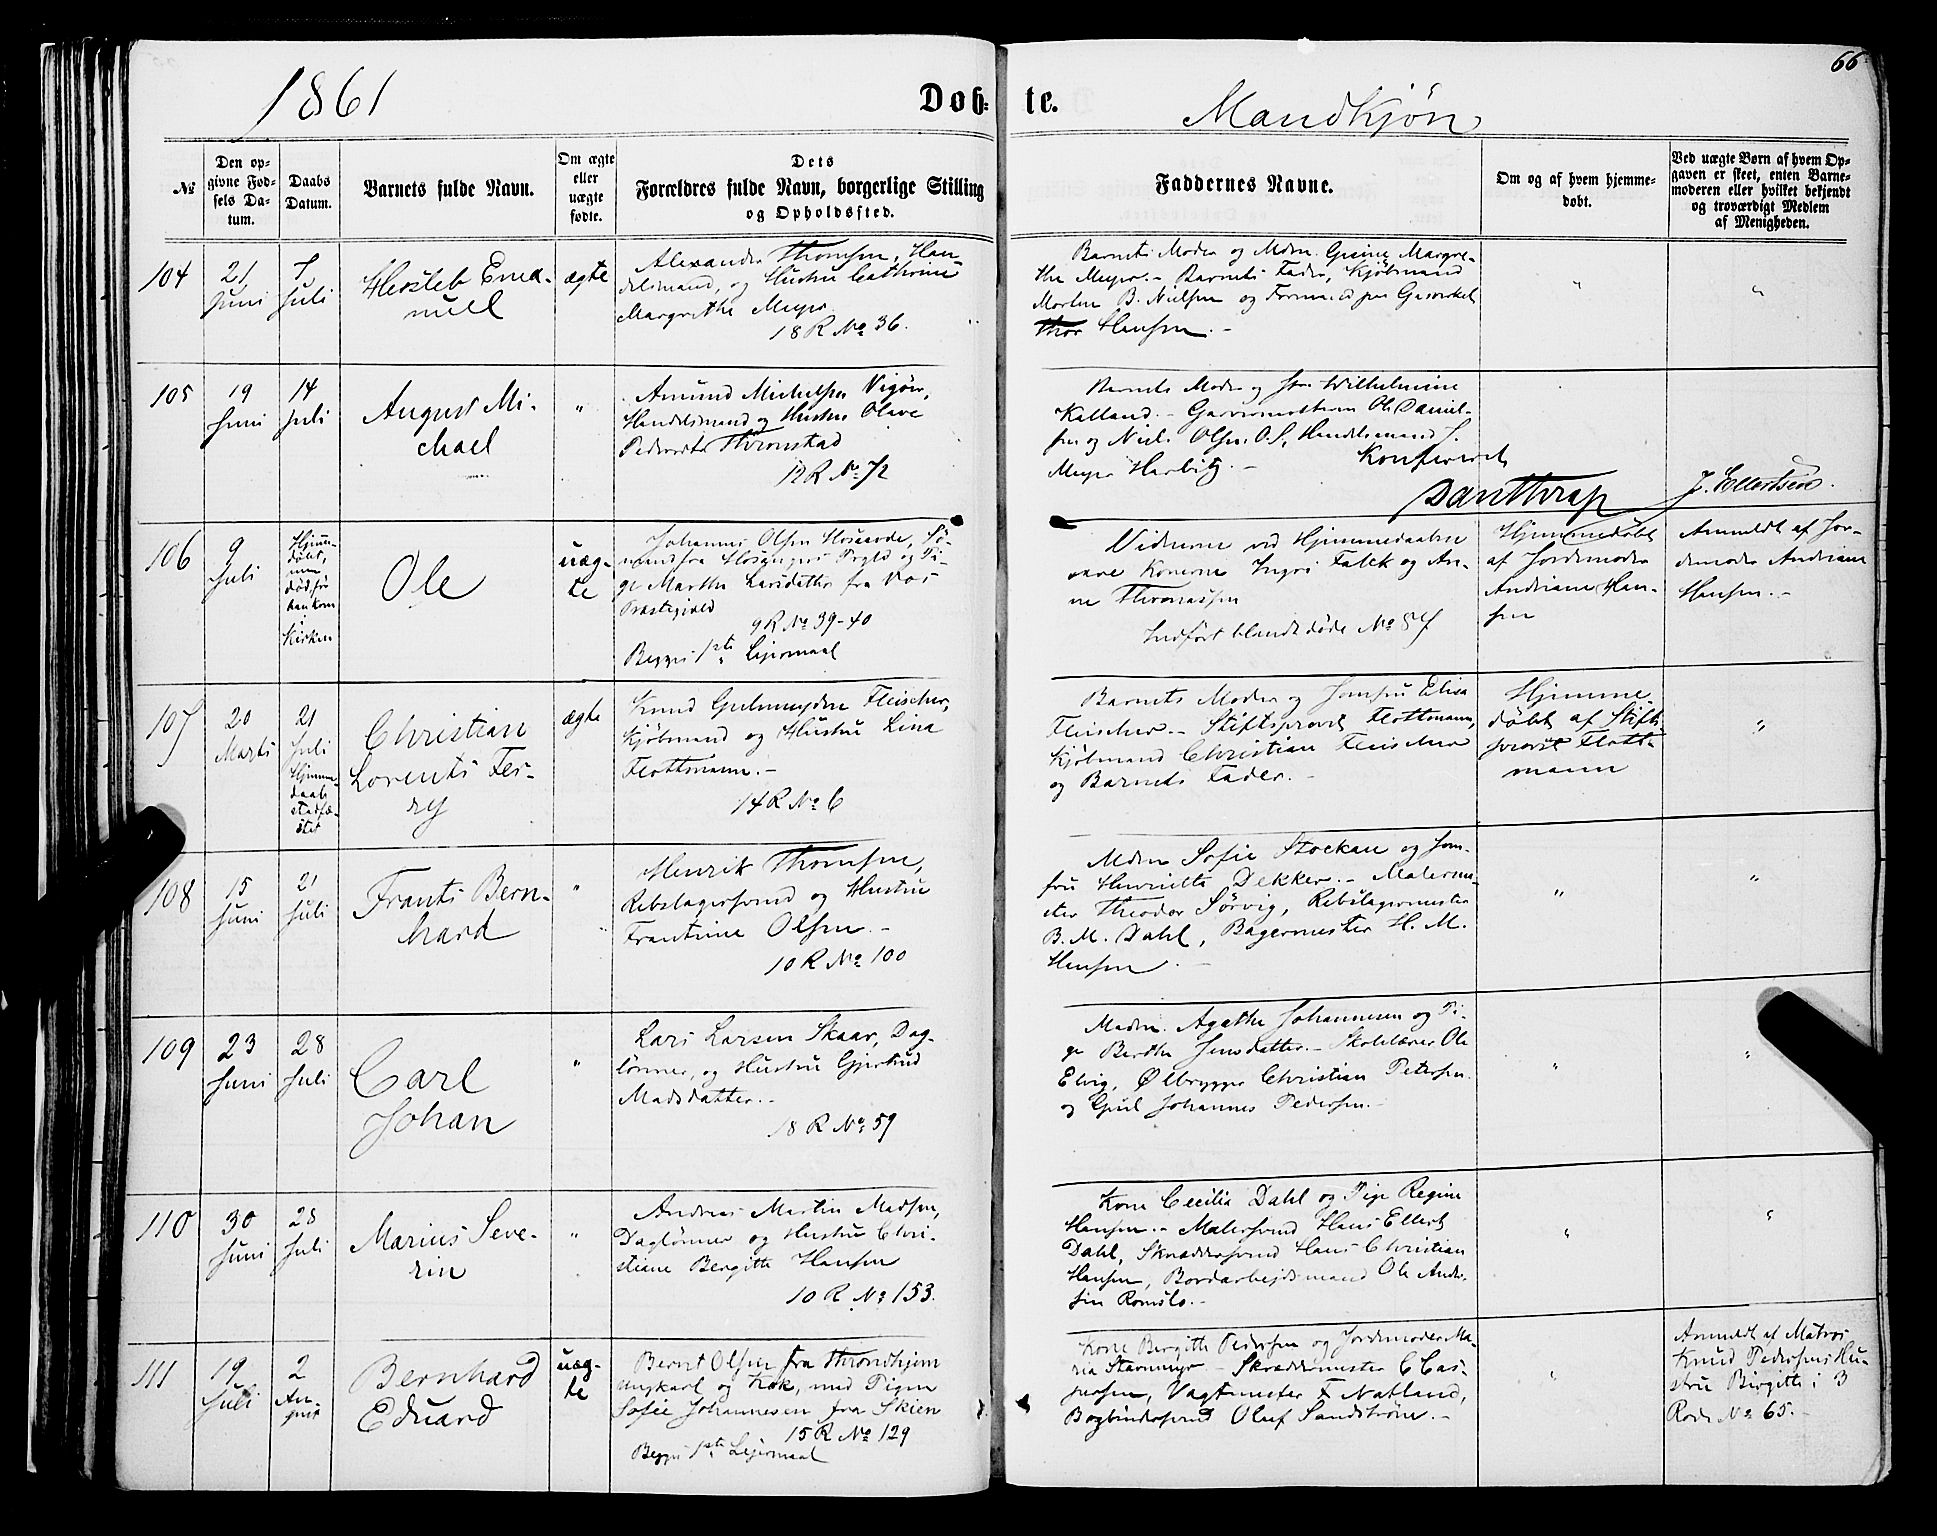 66
1861
Døb-
te.
Mandkjøn
№
Den op-
givne Fød-
sels Da-
tum.
Daabs
Datum.
Barnets fulde Navn.
Om ægte
eller
uægte
fødte.
Dets
Forældres fulde Navn, borgerlige Stilling
og Opholdssted.
Faddernes Navne.
Om og af hvem hjemme-
døbt.
Ved uægte Børn af hvem Op-
gaven er skeet, enten Barne-
moderen eller hvilket bekjendt
og troværdigt Medlem
af Menigheden.
104
21
Juni
7
Juli
Hersleb Ema-
nuel
ægte
Alexander Thomsen, Han-
delsmand, og Hustru Cathrine
Margrethe Meyer
18 R № 36.
Barnets Moder og Mdm. Margre-
the Meyer. – Barnets Fader, Kjøbmand
Morten B. Nielsen og Formand
Thor Hansen. –
"
"
105
19
Juni
14
Juli
August Mi-
chael
"
Amund Michelsen Vigør,
Handelsmand og Hustru Olave
Pedersdtr Thronstad
12 R № 72
Barnets Moder og Wilhelmine
Kalland. – Ole Daniel-
sen og Niels Olsen O.S., Handelsmand J.
Meyer Herbitz. –
Konfereret
Danttorap
J. Ellertsen.
106
9
Juli
Hjemme-
døbt,
men
død, før
han kom
i
Kirken
Ole
uæg-
te
Johannes Olsen Hosaarde, Sø-
mand fra Hosanger Prgld og Pi-
ge Marthe Larsdatter fra Vos
Præstegjeld
9 R № 39-40
Begges 1ste Lejermaal
Vidnerne ved Hjemmedaaben
vare Konerne Ingri Falck og An-
ne Thomassen
Indført blandt døde № 57
Hjemmedøbt
af Jordemoder
Andriane Han-
sen
Anmeldt af Jor-
demoder Andriane
Hansen. –
107
20
Marts
21
Juli
Hjemme-
daab
stadfæ-
stet
Christian
Lorents Fer-
ry
ægte
Knud Gelmuyden Fleischer,
Kjøbmand og Hustru Lina
Flottmann. –
14 R № 6
Barnets Moder og Jomfru Elisa
Fleischer. – Stiftsprovst Flottmann,
Kjøbmand Christian Fleischer
og Barnets Fader. –
Hjemme
døbt af Stifts
provst Flott-
mann
"
108
15
Juni
21
Juli
Frants Bern-
hard
"
Henrik Thomsen,
Rebslagersvend og Hustru
Frantine Olsen. –
10 R № 100
Mdm Sofie Stockau og Jom-
fru Henriette Dekker. – Malerme-
ster Theodor Sørvig, Rebslagermester
B. M. Dahl, Bagermester H. M.
Hansen. –
"
"
109
23
Juni
28
Juli
Carl
Johan
"
Lars Larsen Skaar, Dag-
lønner, og Hustru Gjertrud
Madsdatter. –
18 R № 59
Madm. Agathe Johannesen og Pi-
ge Berthe Jensdatter. – Skolelærer Ole
Elvig, Ølbrygger Christian Petersen
og Johannes Pedersen. –
"
"
110
30
Juni
28
Juli
Marius Seve-
rin
"
Andreas Martin Madsen,
Daglønner og Hustru Chri-
stiane Bergitte Hansen
10 R № 153.
Kone Cecilia Dahl og Pige Regine
Hansen. – Malersvend Hans Ellert
Dahl, Skræddersvend Hans Christian
Hansen, Bordarbejdsmand Ole Ander-
sen Romslo. –
"
"
111
19
Juli
2
Au-
gust
Bernhard
Eduard
uæg-
te
Bernt Olsen fra Throndhjem
Ungkarl og Kok, med Pigen
Sofie Johannesen fra Skien
15 R № 129
Begges 1ste Lejermaal
Kone Bergitte Pedersen og Jordemoder Ma-
ria Stermeyr – Skræddermester C Cas-
persen, Vagtmester F Natland,
Bogbindersvend Oluf Sandstrøm. –
"
Anmeldt af Matros
Knud Pedersens Hu-
stru Birgitte i 3
Rode № 65. –